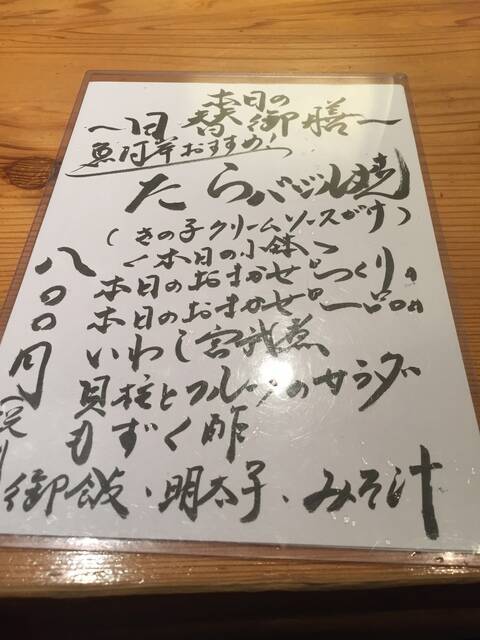 本日の
〜日替御膳〜
魚河岸おすすめ!
たらバジル焼
(きの子クリームソースがけ)
<本日の小鉢>
本日のおまかせ"つくり"
本日のおまかせ"一品"
いわし宮武煮
貝柱とフルーツのサラダ
もずく酢
御飯・明太子・みそ汁
八〇〇円